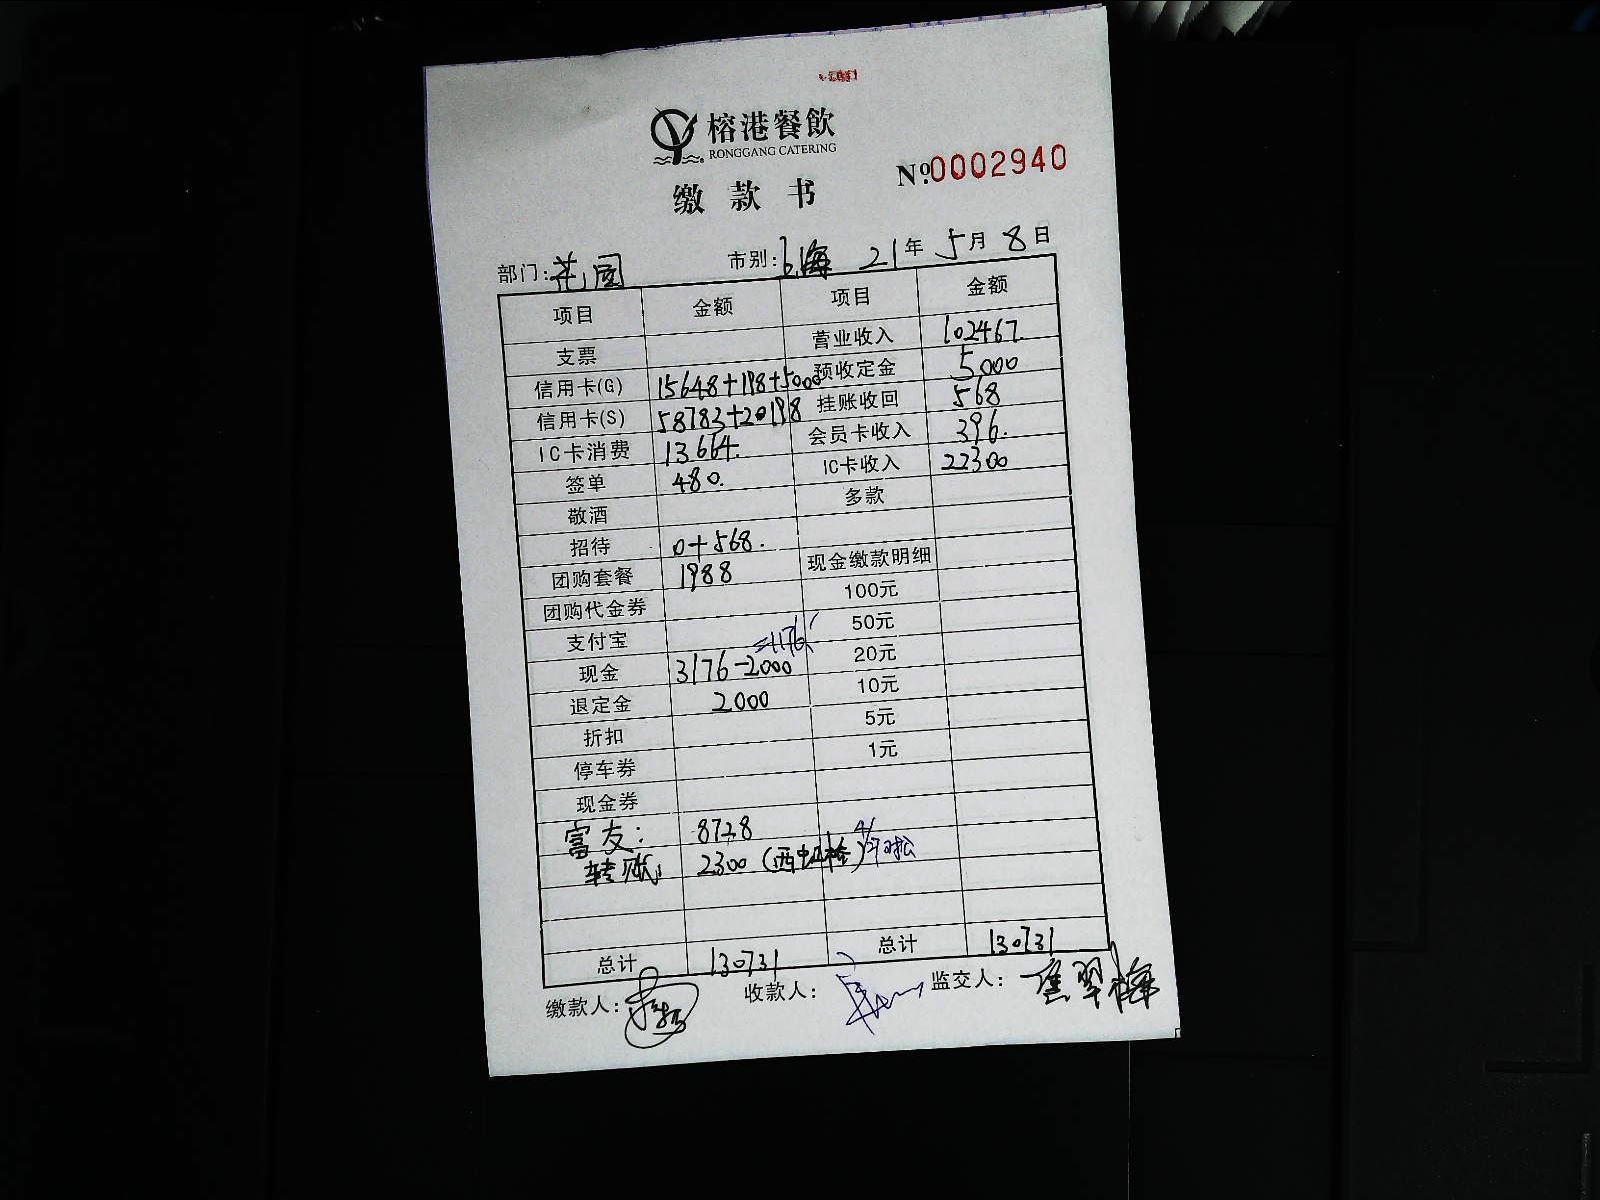 榕港餐飲
RONGGANG CATERING
缴款书
№0002940
部门:花园 市别:上海 21年5月8日
项目 金额 项目 金额
支票 营业收入 102467.
信用卡(G) 15648+198+5000 预收定金 5000
信用卡(S) 58783+20198 挂账收回 568
IC卡消费 13664. 会员卡收入 396.
签单 480. IC卡收入 22300
敬酒 多款
招待 0+568.
团购套餐 1988 现金缴款明细
团购代金券 100元
支付宝 50元
=1176
现金 3176-2000 20元
退定金 2000 10元
折扣 5元
停车券 1元
现金券
富友: 8728
转账: 2300
总计 130731 总计 130731
缴款人: 收款人: 监交人: 焦翠梅